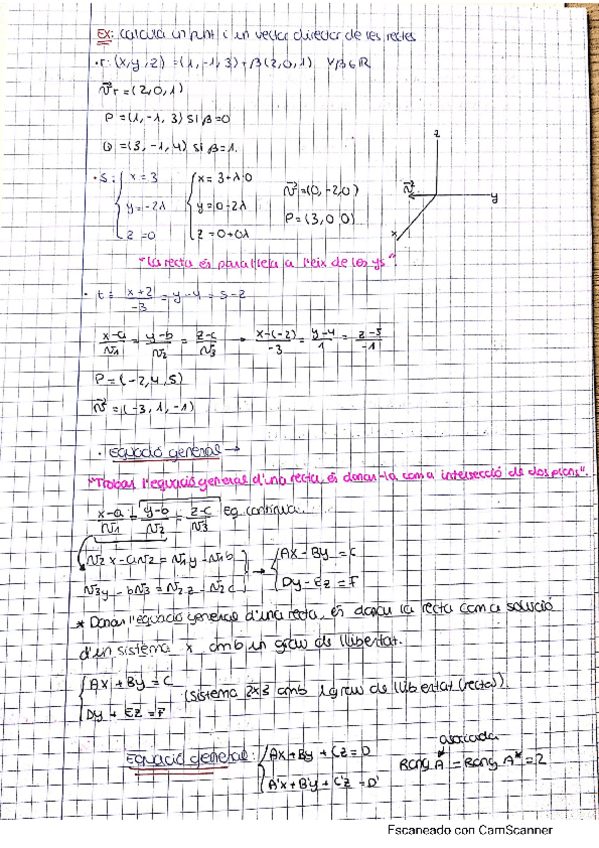 EX: Calcula un punt i un vector director de les rectes
· r: (x,y,z) = (1,-1,3) + β(2,0,1) ∀β∈R
v⃗r = (2,0,1)
P = (1,-1,3) si β=0
Q = (3,-1,4) si β=1.
· s: { x = 3 { x = 3+λ·0
y = -2λ y = 0-2λ
z = 0 z = 0+0λ
v⃗ = (0,-2,0)
P = (3,0,0)
z
v⃗
y
x
"La recta és paral·lela a l'eix de les ys".
· t: x+2/-3 = y-4 = 5-z
x-a/v1 = y-b/v2 = z-c/v3 → x-(-2)/-3 = y-4/1 = z-5/-1
P = (-2,4,5)
v⃗ = (-3,1,-1)
· Equació general →
"Trobar l'equació general d'una recta, és donar-la com a intersecció de dos plans".
x-a/v1 = y-b/v2 = z-c/v3 Eq. contínua.
v2x - av2 = v1y - v1b } → { Ax - By = C
v3y - bv3 = v2z - v2c Dy - Ez = F
* Donar l'equació general d'una recta, és donar la recta com a solució
d'un sistema x amb un grau de llibertat.
{ Ax + By = C
Dy + Ez = F
(sistema 2x3 amb 1 grau de llibertat (recta)).
Equació general: { Ax + By + Cz = D
A'x + B'y + C'z = D'
associada
Rang A = Rang A* = 2
Escaneado con CamScanner